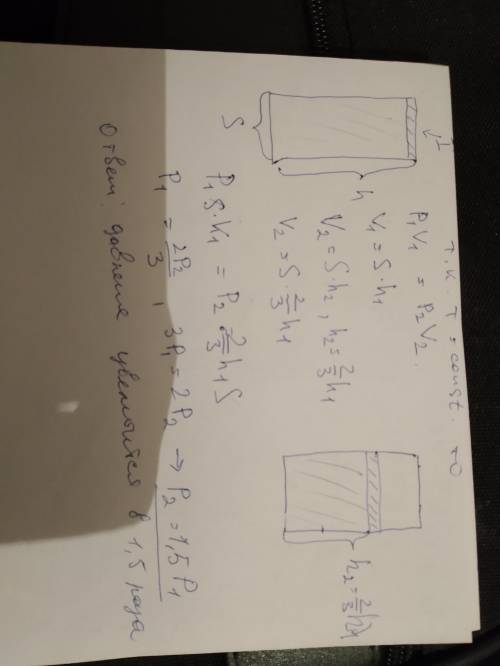 т.к. T = const. то
P₁V₁ = P₂V₂.
V₁ = S·h₁
V₂ = S·h₂, h₂ = 2/3 h₁
V₂ = S·2/3 h₁
P₁S·h₁ = P₂ 2/3 h₁S
P₁ = 2P₂/3, 3P₁ = 2P₂ → P₂ = 1,5P₁
Ответ: давление увеличится в 1,5 раза
h
S
h₂ = 2/3 h₁